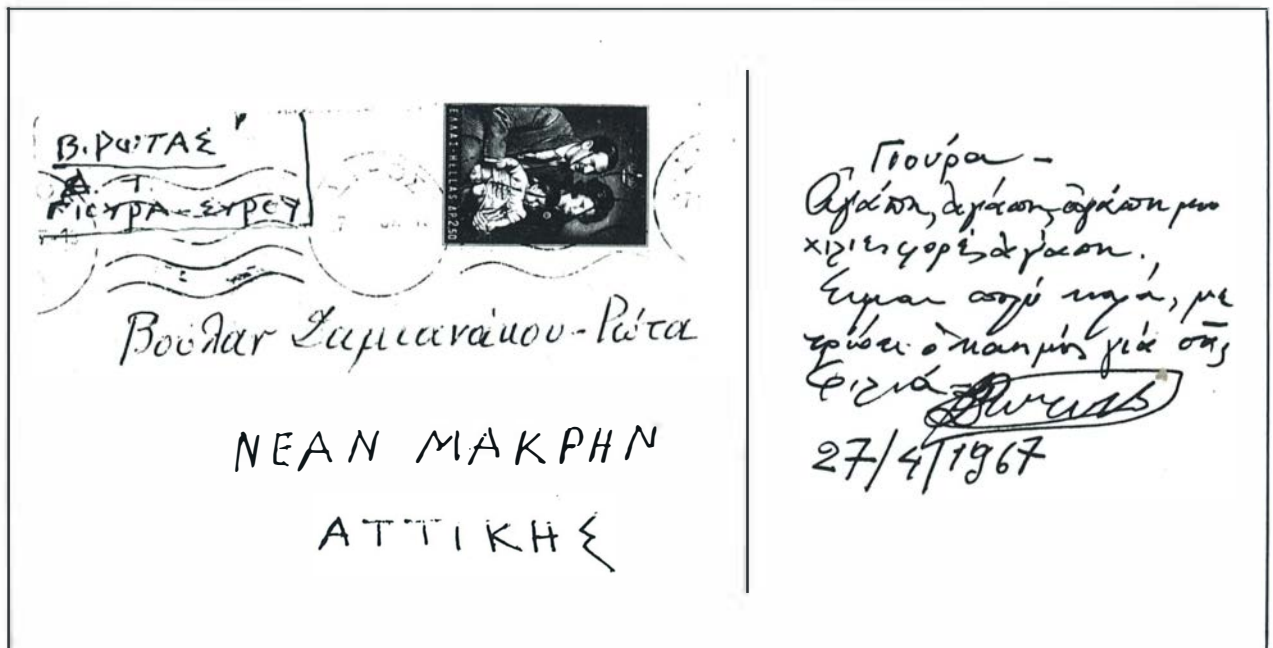 Β. ΡΩΤΑΣ
Δ. Τ.
ΓΙΟΥΡΑ - ΣΥΡΟΥ
ΕΛΛΑΣ-HELLAS ΔΡ 2.50
Βούλαν Δαμιανάκου-Ρώτα
ΝΕΑΝ ΜΑΚΡΗΝ
ΑΤΤΙΚΗΣ
Γιούρα -
Ἀγάπη, ἀγάπη, ἀγάπη μου
χίλιες φορές ἀγάπη.
Εἶμαι πολύ καλά, με
τρώει ὁ καημός γιά σᾶς
Φιλιά -
27/4/1967